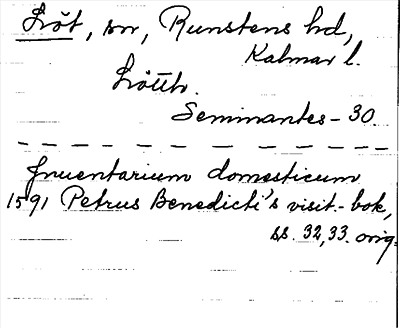 Löt, sn, Runstens hd,
Kalmar l.
Lötth.
Seminantes - 30.
Inventarium domesticum
1591 Petrus Benedicti's visit.- bok,
ss. 32, 33. orig.